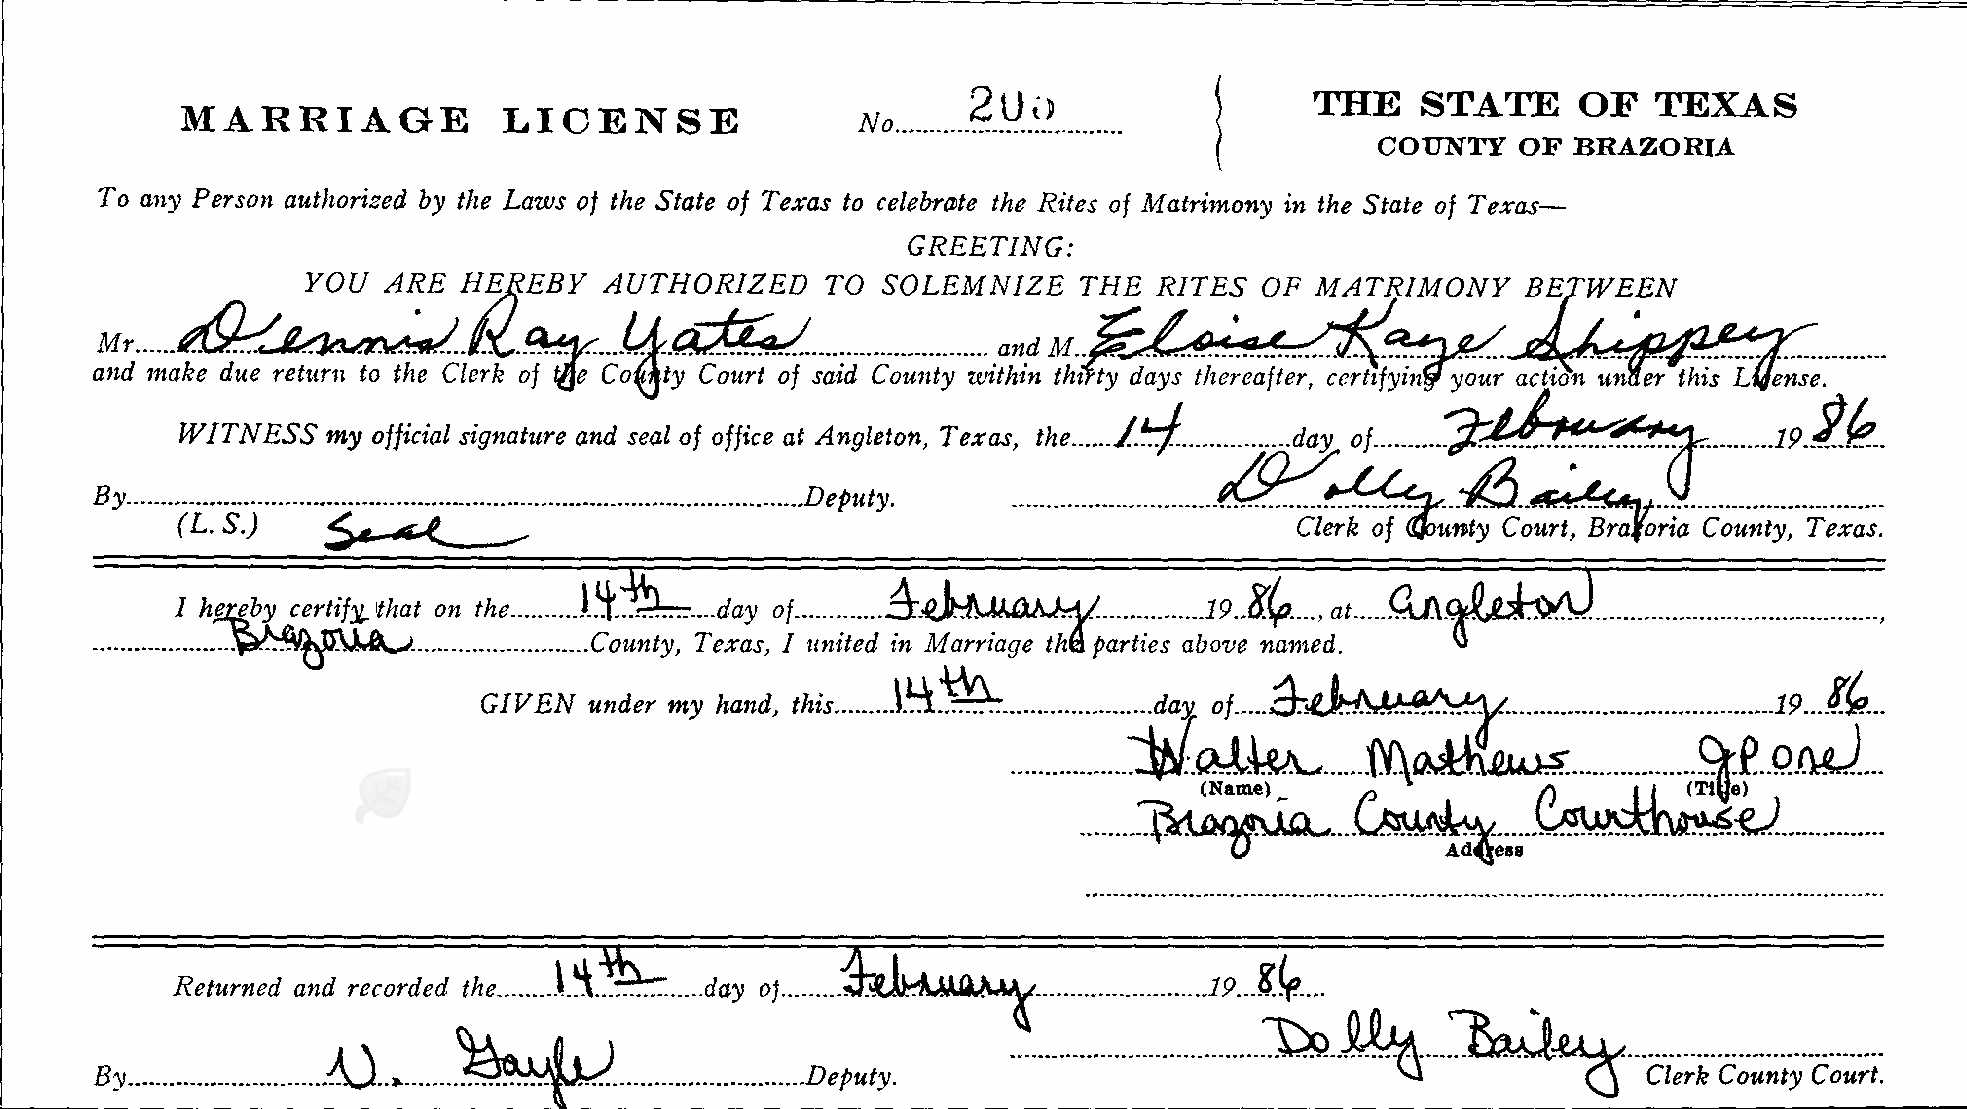 MARRIAGE LICENSE No. THE STATE OF TEXAS
COUNTY OF BRAZORIA
To any Person authorized by the Laws of the State of Texas to celebrate the Rites of Matrimony in the State of Texas—
GREETING:
YOU ARE HEREBY AUTHORIZED TO SOLEMNIZE THE RITES OF MATRIMONY BETWEEN
Mr. Dennis Ray Yates and M. Eloise Kaye Shippey
and make due return to the Clerk of the County Court of said County within thirty days thereafter, certifying your action under this License.
WITNESS my official signature and seal of office at Angleton, Texas, the 14 day of February 1986
By Deputy. Dolly Bailey
(L. S.) Seal Clerk of County Court, Brazoria County, Texas.
I hereby certify that on the 14th day of February 1986, at Angleton,
Brazoria County, Texas, I united in Marriage the parties above named.
GIVEN under my hand, this 14th day of February 1986
Walter Mathews JP One
(Name) (Title)
Brazoria County Courthouse
Address
Returned and recorded the 14th day of February 1986
Dolly Bailey
By N. Gayle Deputy. Clerk County Court.